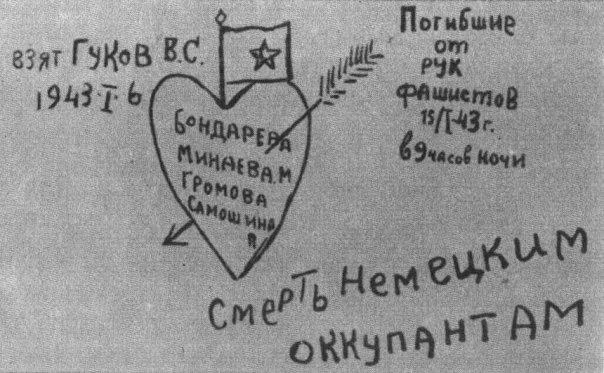 взят Гуков В.С.
1943·I·6
Бондарева
Минаева.М
Громова
Самошина
П
Погибшие
от
рук
фашистов
15/I-43г.
в 9 часов ночи
Смерть Немецким
оккупантам